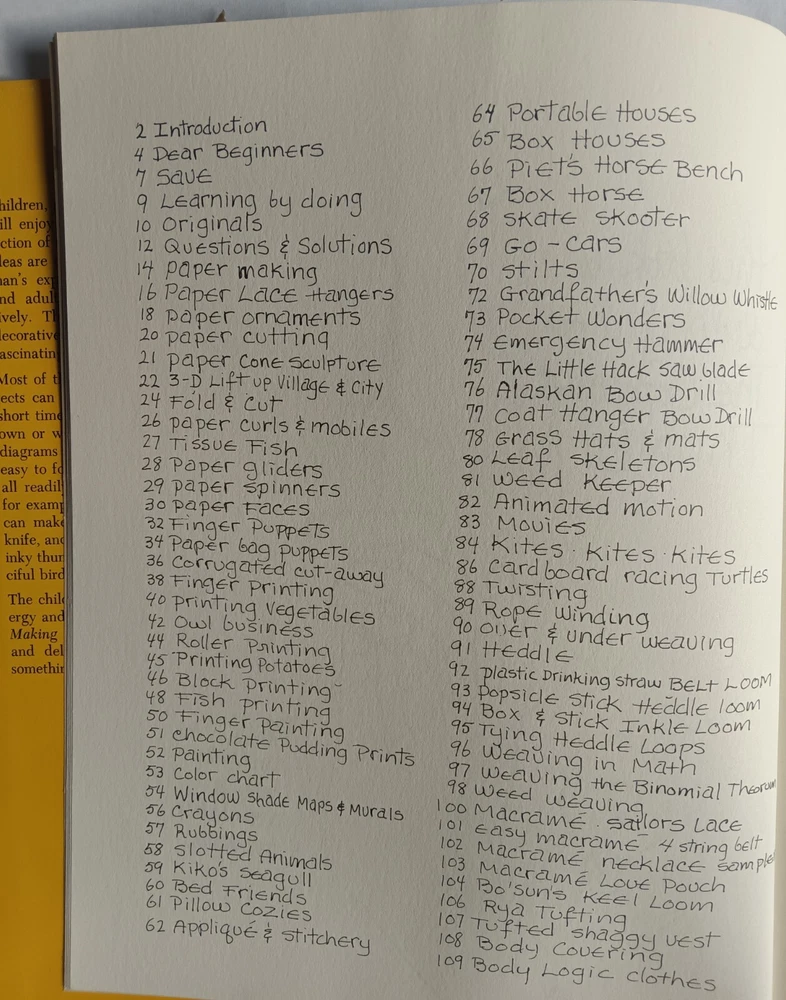 hildren,
ill enjoy
ction of
leas are
nan's ex
nd adul
ively. T
lecorative
ascinatin
Most of t
ects can
short time
own or w
diagrams
easy to fo
all readil
for examp
can make
knife, and
inky thum
ciful bird
The chil
ergy and
Making
and del
somethin
2 Introduction
4 Dear Beginners
7 Save
9 Learning by doing
10 Originals
12 Questions & Solutions
14 paper making
16 Paper Lace Hangers
18 paper ornaments
20 paper cutting
21 paper cone sculpture
22 3-D Lift up Village & City
24 Fold & Cut
26 paper curls & mobiles
27 Tissue Fish
28 Paper gliders
29 paper spinners
30 paper Faces
32 Finger Puppets
34 Paper bag puppets
36 Corrugated cut-away
38 Finger Printing
40 printing Vegetables
42 Owl business
44 Roller Printing
45 Printing Potatoes
46 Block Printing
48 Fish printing
50 Finger Painting
51 chocolate Pudding Prints
52 Painting
53 Color chart
54 Window Shade Maps & Murals
56 Crayons
57 Rubbings
58 Slotted Animals
59 Kiko's Seagull
60 Bed Friends
61 Pillow Cozies
62 Appliqué & Stitchery
64 Portable Houses
65 Box Houses
66 Piet's Horse Bench
67 Box Horse
68 skate skooter
69 Go-cars
70 stilts
72 Grandfather's Willow Whistle
73 Pocket Wonders
74 Emergency Hammer
75 The Little Hack saw blade
76 Alaskan Bow Drill
77 Coat Hanger Bow Drill
78 Grass Hats & mats
80 Leaf skeletons
81 Weed Keeper
82 Animated motion
83 Movies
84 Kites · Kites · Kites
86 Cardboard racing Turtles
88 Twisting
89 Rope Winding
90 Over & under weaving
91 Heddle
92 plastic Drinking straw BELT LOOM
93 Popsicle stick Heddle loom
94 Box & stick Inkle Loom
95 Tying Heddle Loops
96 Weaving in Math
97 Weaving the Binomial Theorum
98 Weed Weaving
100 Macramé · sailors Lace
101 easy macramé 4 string belt
102 Macramé necklace sampler
103 Macramé Love Pouch
104 Bo'sun's Keel Loom
106 Rya Tufting
107 Tufted shaggy vest
108 Body Covering
109 Body Logic clothes